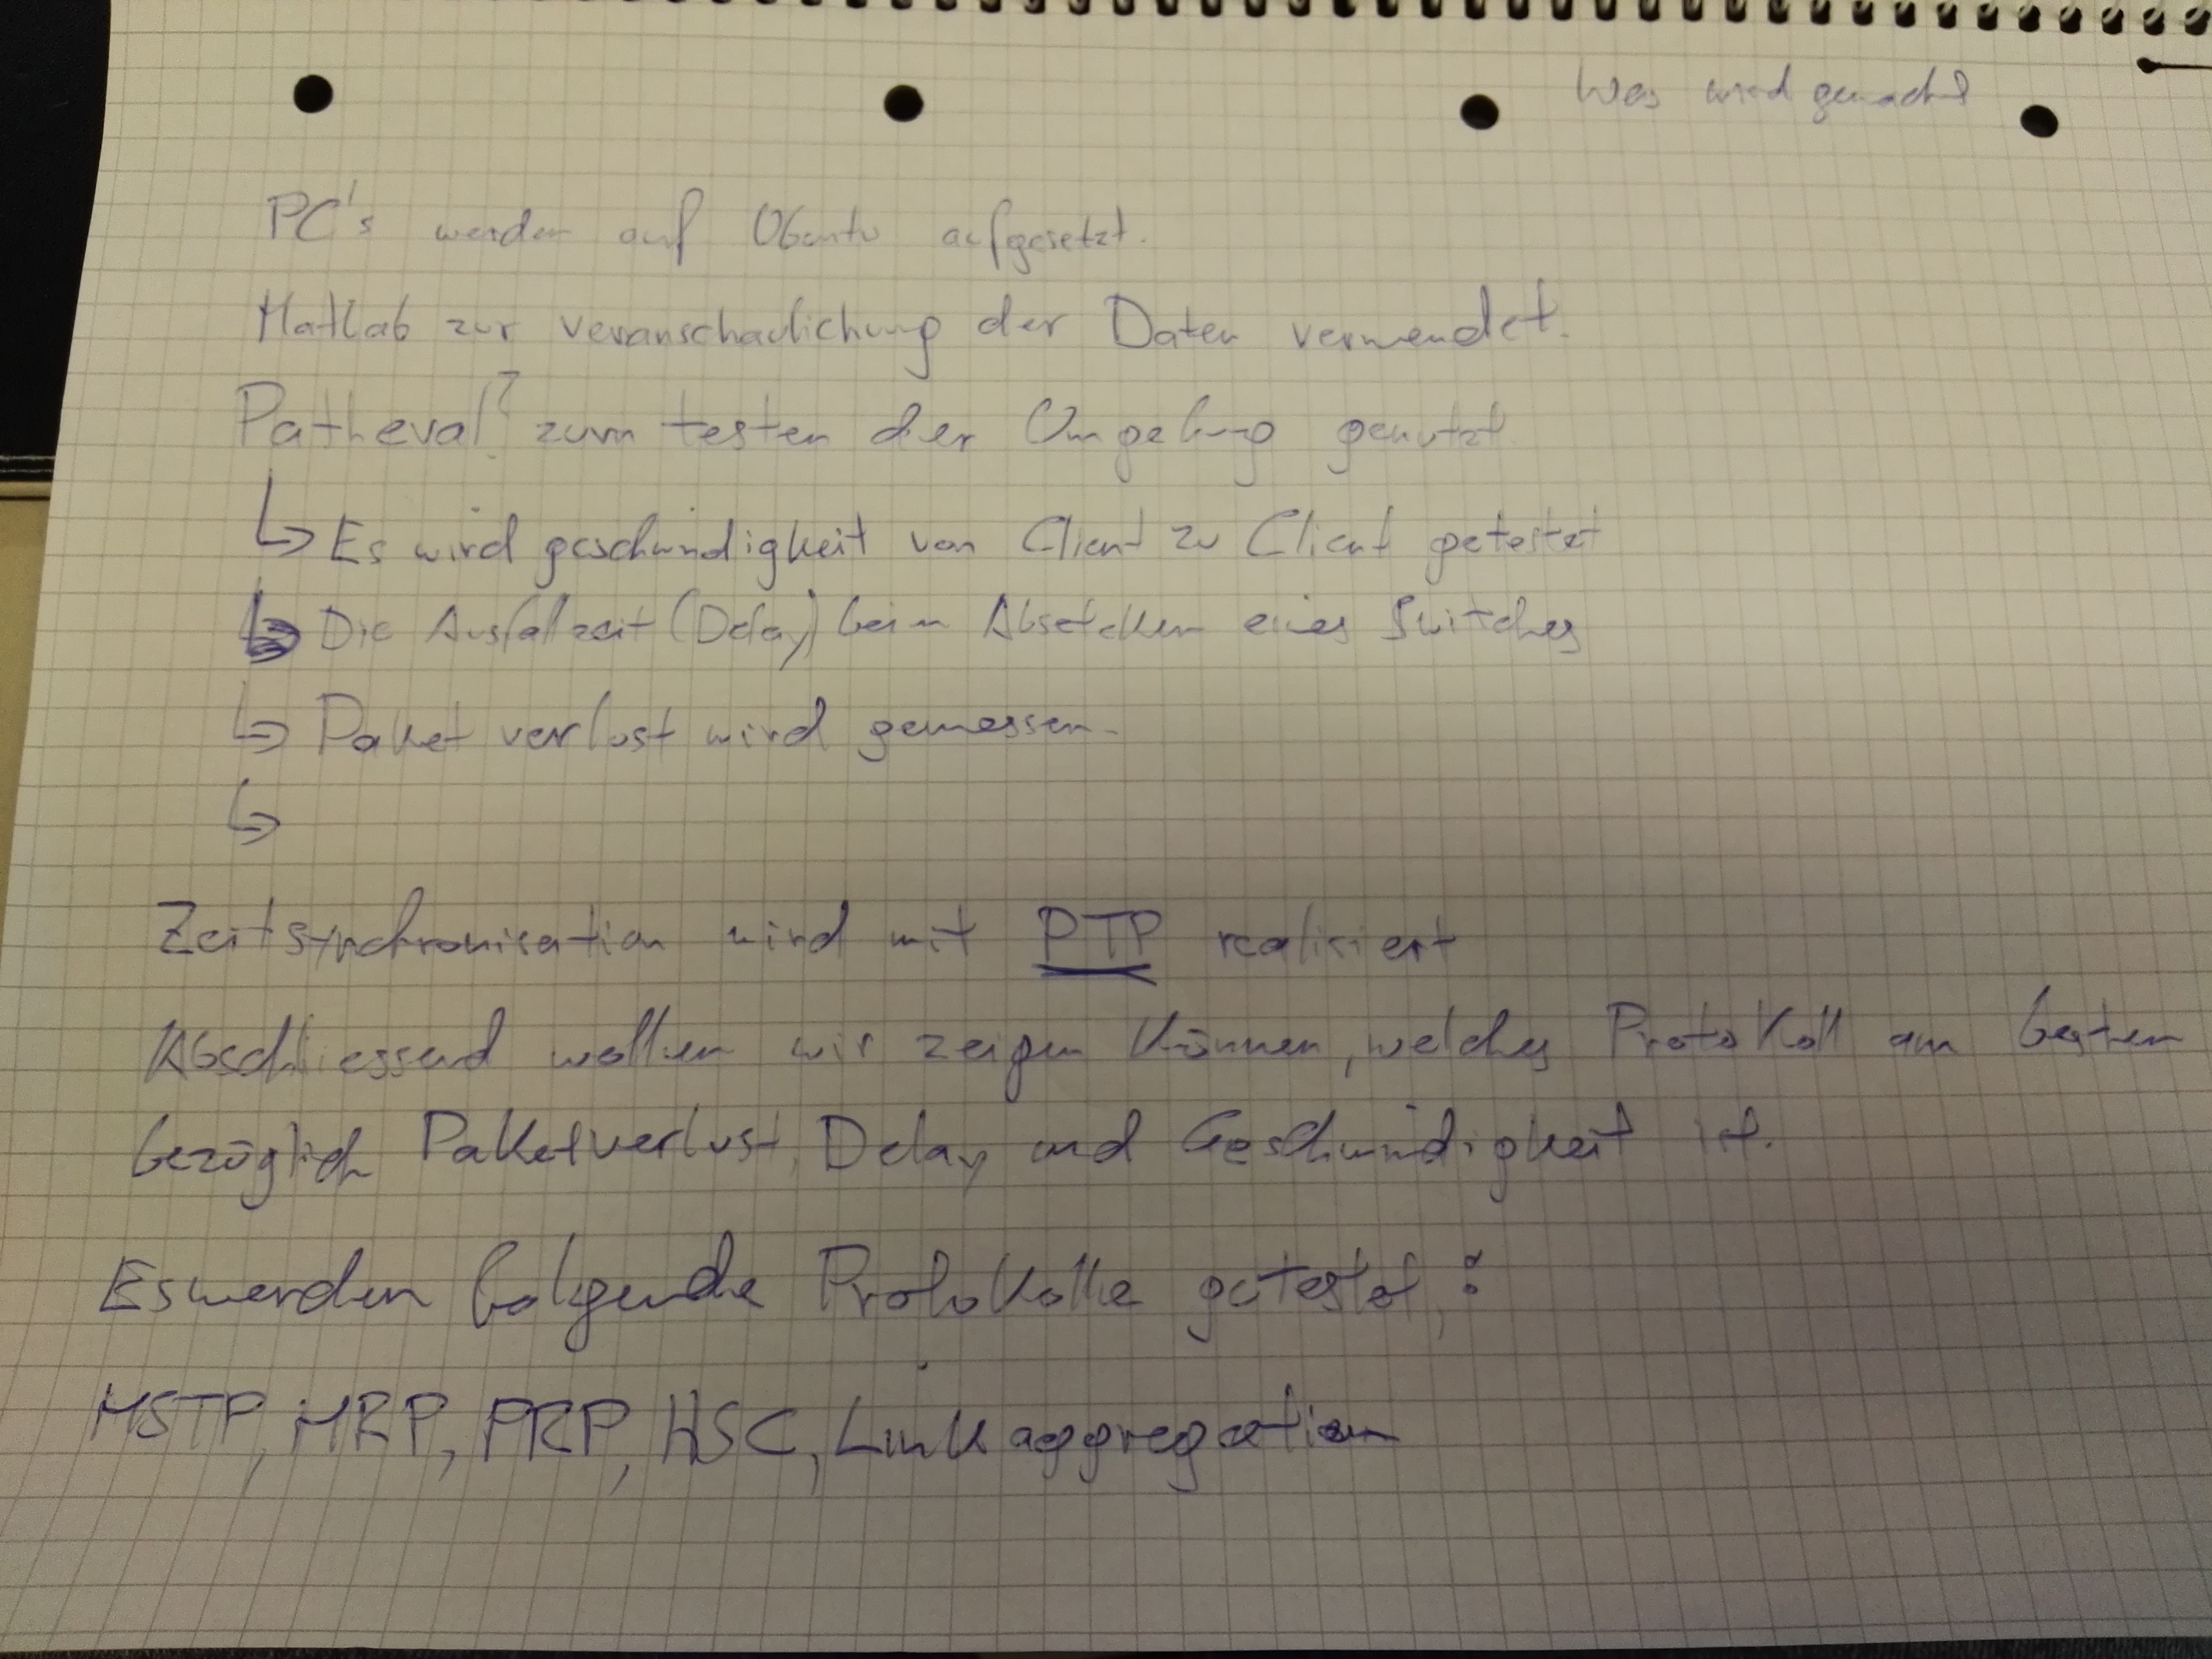 Was wird gemacht
PC's werden auf Ubuntu aufgesetzt.
Matlab zur veranschaulichung der Daten verwendet.
Patheval? zum testen der Umgebung genutzt
↳ Es wird geschwindigkeit von Client zu Client getestet
↳ Die Ausfallzeit (Delay) beim eines Switches
↳ Paket verlust wird gemessen.
↳
Zeitsynchronisation wird mit PTP realisiert
Abschliessend wollen wir zeigen können, welches Protokoll am besten
bezüglich Paketverlust, Delay und Geschwindigkeit ist.
Es werden folgende Protokolle getestet,:
MSTP, MRP, PRP, HSC, Linkaggregation